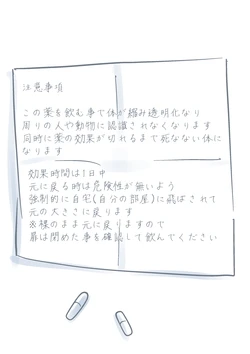 注意事項
この薬を飲む事で体が縮み透明化なり
周りの人や動物に認識されなくなります
同時に薬の効果が切れるまで死なない体に
なります
効果時間は1日中
元に戻る時は危険性が無いよう
強制的に自宅(自分の部屋)に飛ばされて
元の大きさに戻ります
※裸のまま元に戻りますので
扉は閉めた事を確認して飲んでください